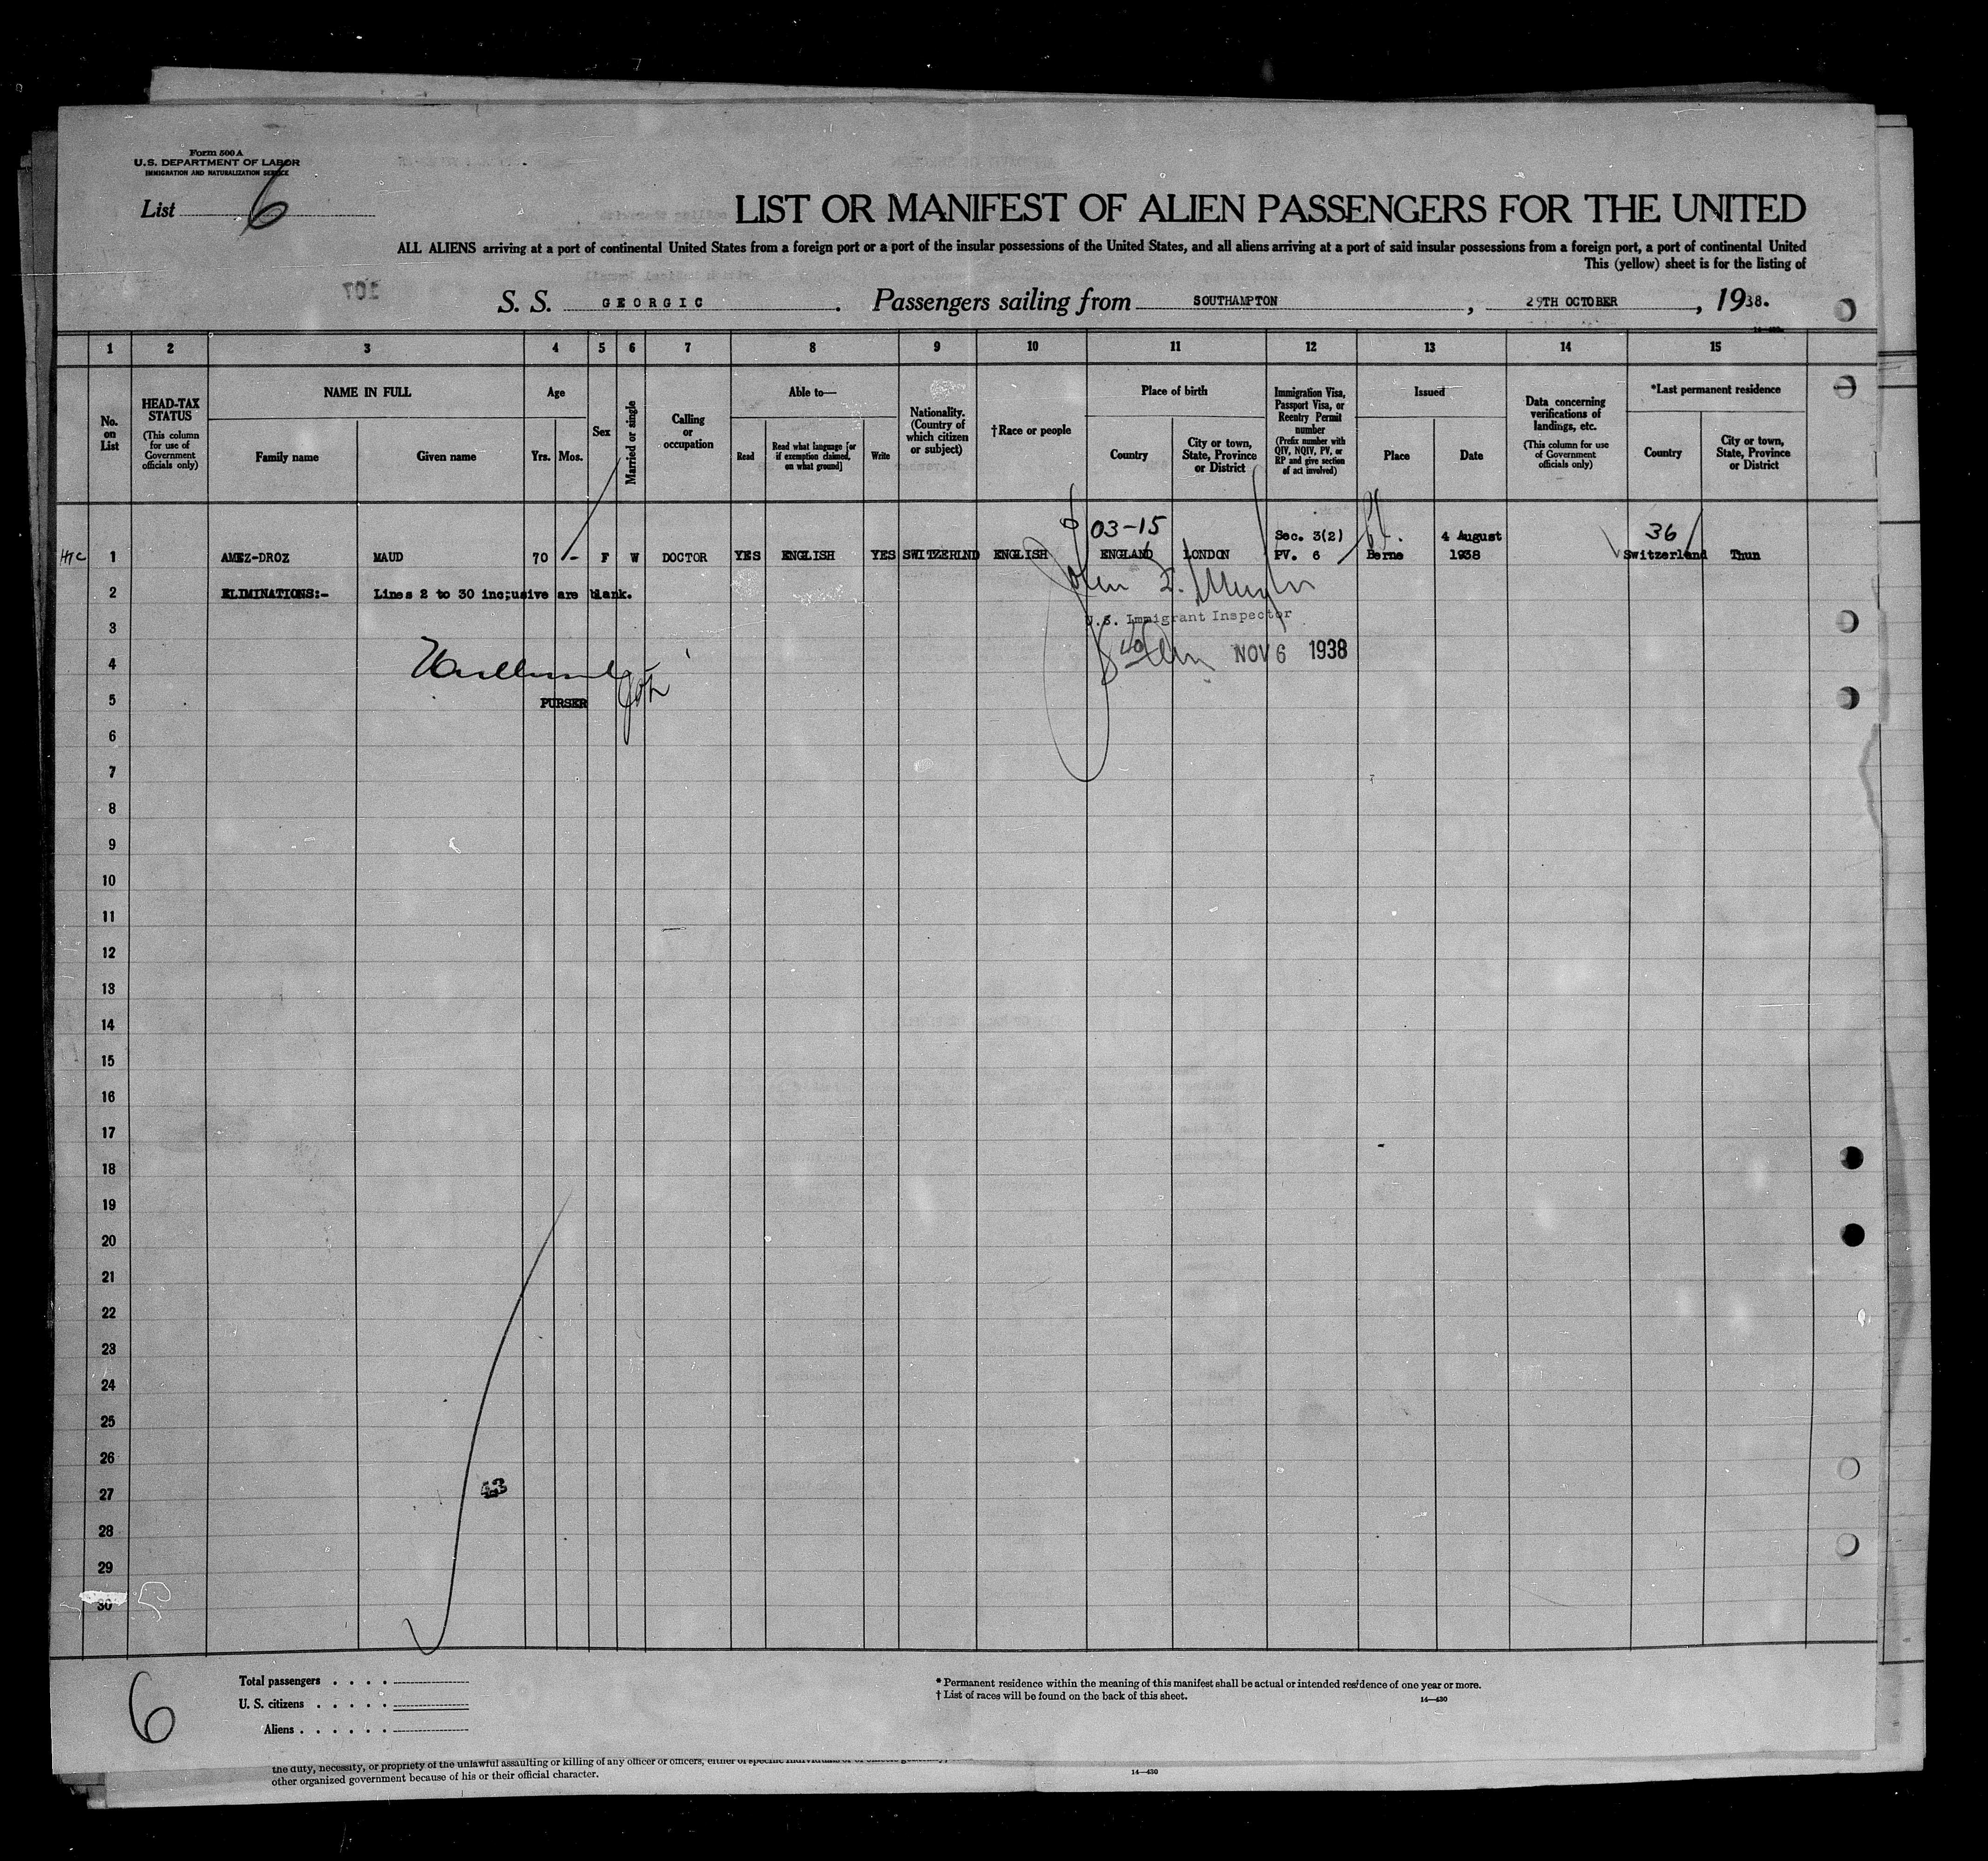 Form 500 A
U.S. DEPARTMENT OF LABOR
IMMIGRATION AND NATURALIZATION SERVICE
List 6
LIST OR MANIFEST OF ALIEN PASSENGERS FOR THE UNITED
ALL ALIENS arriving at a port of continental United States from a foreign port or a port of the insular possessions of the United States, and all aliens arriving at a port of said insular possessions from a foreign port, a port of continental United
This (yellow) sheet is for the listing of
S. S. GEORGIC. Passengers sailing from SOUTHAMPTON, 29TH OCTOBER, 1938.
1 2 3 4 5 6 7 8 9 10 11 12 13 14 15
No. on List
HEAD-TAX STATUS
(This column for use of Government officials only)
NAME IN FULL
Family name
Given name
Age
Yrs.
Mos.
Sex
Married or single
Calling or occupation
Able to—
Read
Read what language [or if exemption claimed, on what ground]
Write
Nationality. (Country of which citizen or subject)
†Race or people
Place of birth
Country
City or town, State, Province or District
Immigration Visa, Passport Visa, or Reentry Permit number
(Prefix number with QIV, NQIV, PV, or RP and give section of act involved)
Issued
Place
Date
Data concerning verifications of landings, etc.
(This column for use of Government officials only)
*Last permanent residence
Country
City or town, State, Province or District
03-15 Sec. 3(2) 4 August 36
HTC 1 AMEZ-DROZ MAUD 70 - F W DOCTOR YES ENGLISH YES SWITZERLND ENGLISH ENGLAND LONDON PV. 6 Berne 1938 Switzerland Thun
2 ELIMINATIONS:- Lines 2 to 30 inc;usive are blank.
3 U.S. Immigrant Inspector
4 NOV 6 1938
5 PURSER
6
7
8
9
10
11
12
13
14
15
16
17
18
19
20
21
22
23
24
25
26
27 43
28
29
30
6
Total passengers . . . .
U. S. citizens . . . . .
Aliens . . . . . .
* Permanent residence within the meaning of this manifest shall be actual or intended residence of one year or more.
† List of races will be found on the back of this sheet. 14—430
the duty, necessity, or propriety of the unlawful assaulting or killing of any officer or officers, either of specific
other organized government because of his or their official character. 14—430